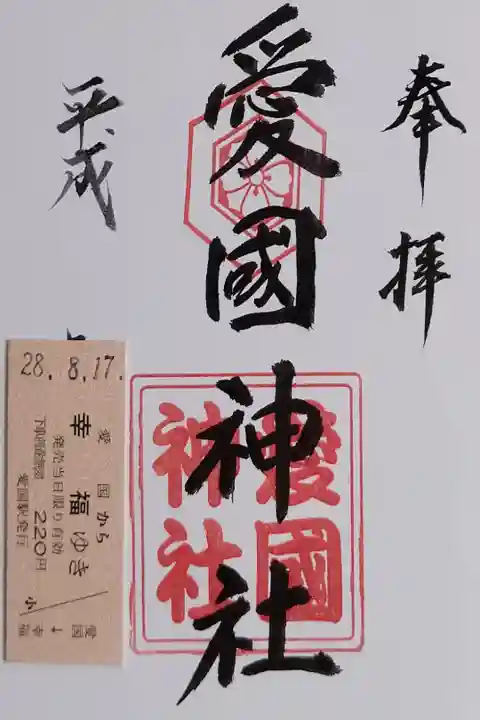 奉拝
愛國神社
愛國
神社
平成
28.8.17.
愛国から
幸福ゆき
発売当日限り有効
下車前途無効 220円
愛国駅発行
小
愛国
↓
幸福